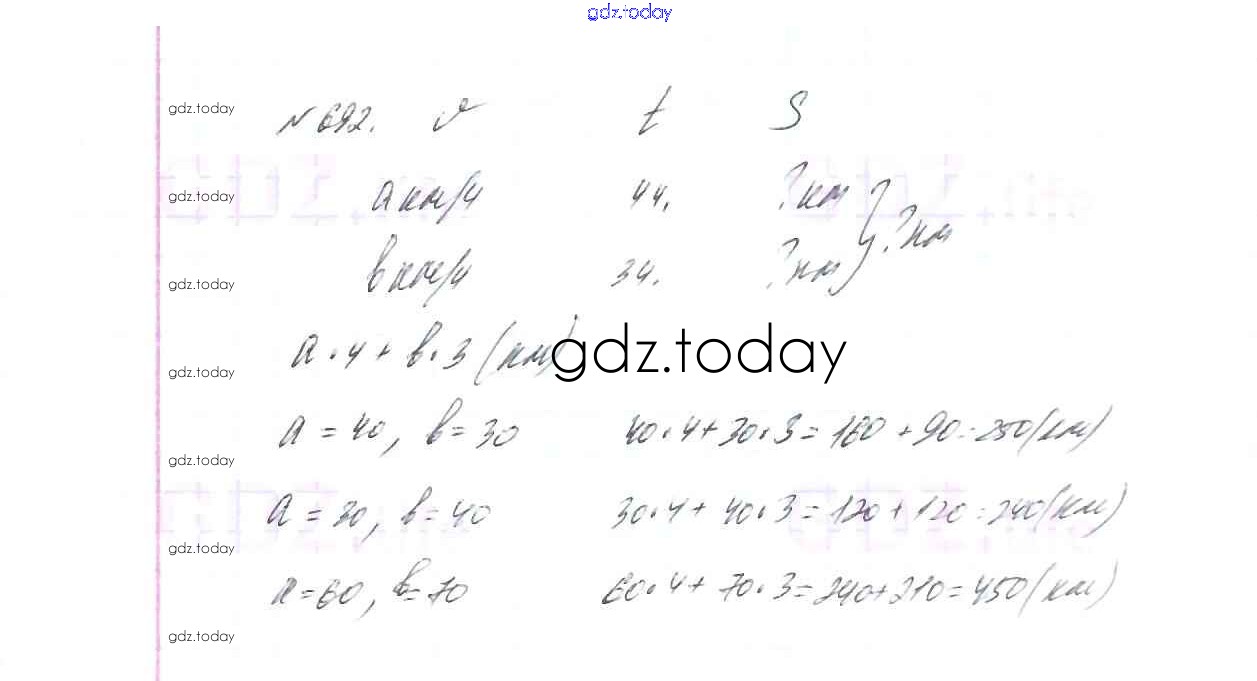 gdz.today
gdz.today
№692. v t S
gdz.today
a км/ч 4ч. ?км
?км
в км/ч 3ч. ?км
gdz.today
a·4+в·3(км)
gdz.today
gdz.today
a=40, в=30 40·4+30·3=160+90=250(км)
gdz.today
a=30, в=40 30·4+40·3=120+120=240(км)
gdz.today
a=60, в=70 60·4+70·3=240+210=450(км)
gdz.today